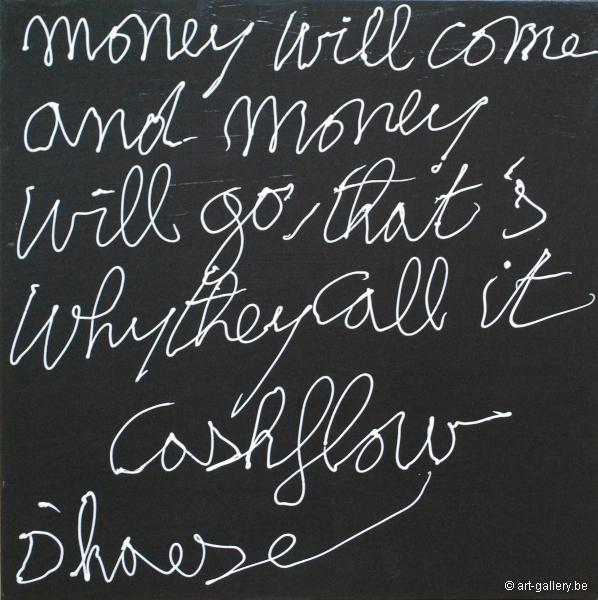 money will come
and money
will go, that's
why they call it
cashflow
© art-gallery.be